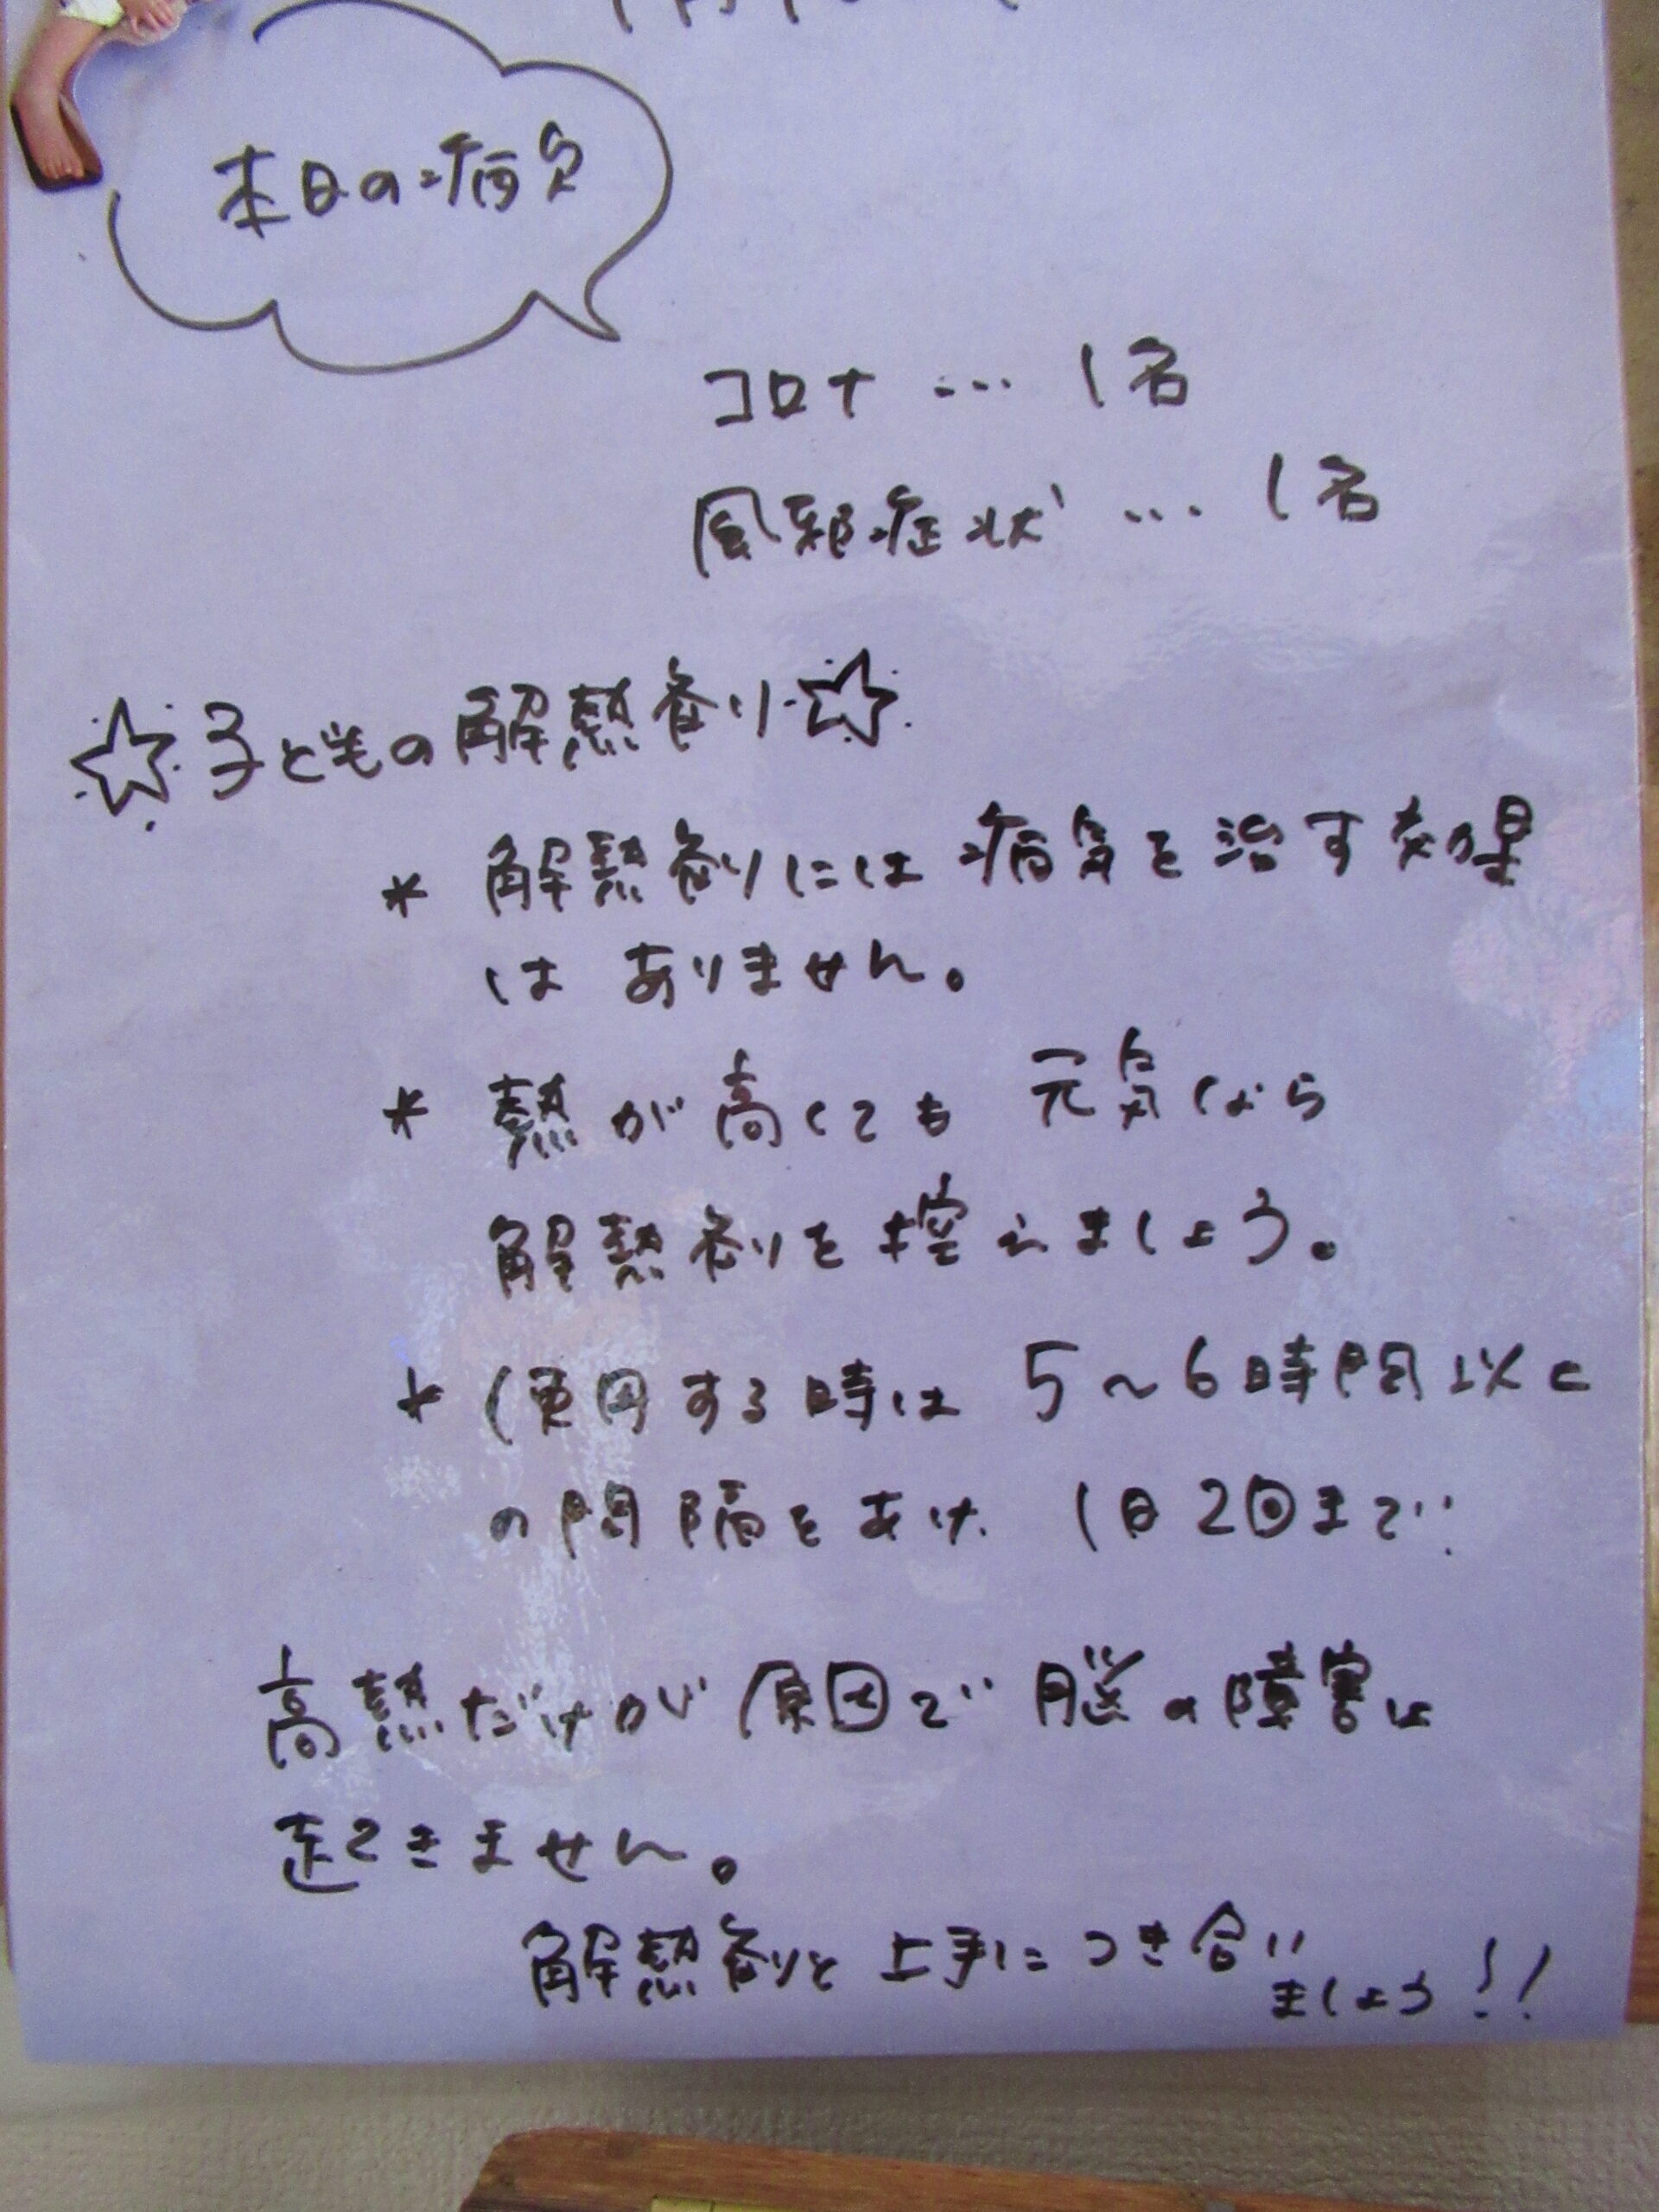 本日の病欠
コロナ … 1名
風邪症状 … 1名
☆子どもの解熱剤☆
* 解熱剤には病気を治す効果
は ありません。
* 熱が高くても 元気なら
解熱剤を控えましょう。
* 使用する時は 5~6時間以上
の間隔をあけ 1日2回まで!
高熱だけが原因で脳の障害は
起こきません。
解熱剤と上手につき合い
ましょう!!